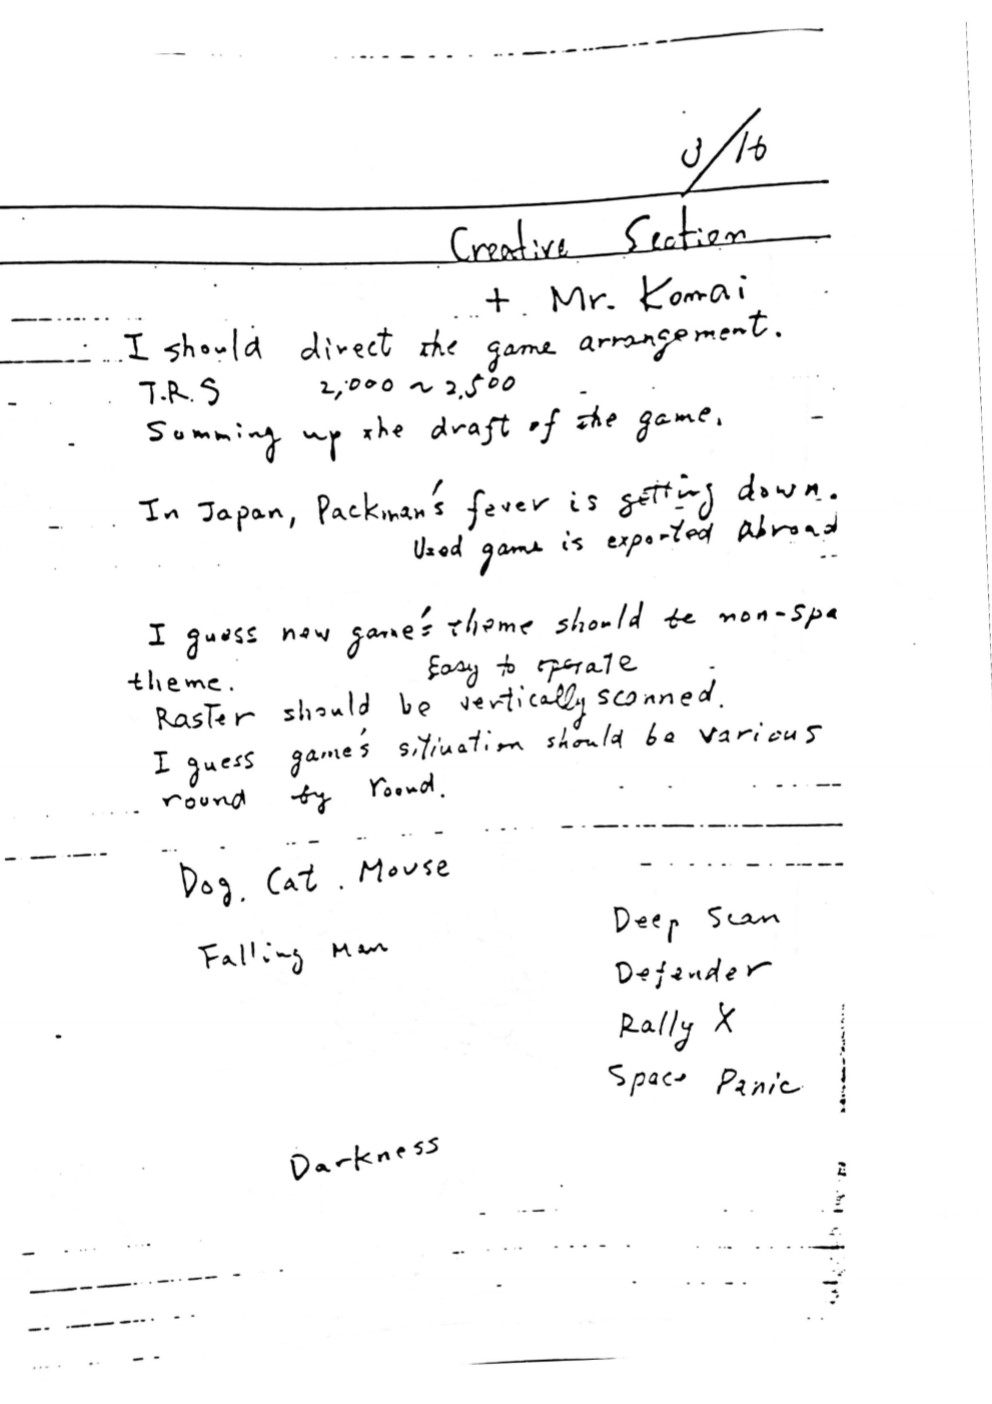 3/16
Creative Section
+ Mr. Komai
I should direct the game arrangement.
T.R.S 2,000 ~ 2,500
Summing up the draft of the game.
In Japan, Packman's fever is getting down.
Used game is exported abroad
I guess new game's theme should be non-spa
theme. Easy to operate
Raster should be vertically scanned.
I guess game's sitiuation should be various
round by round.
Dog. Cat. Mouse
Falling Man
Deep Scan
Defender
Rally X
Space Panic
Darkness